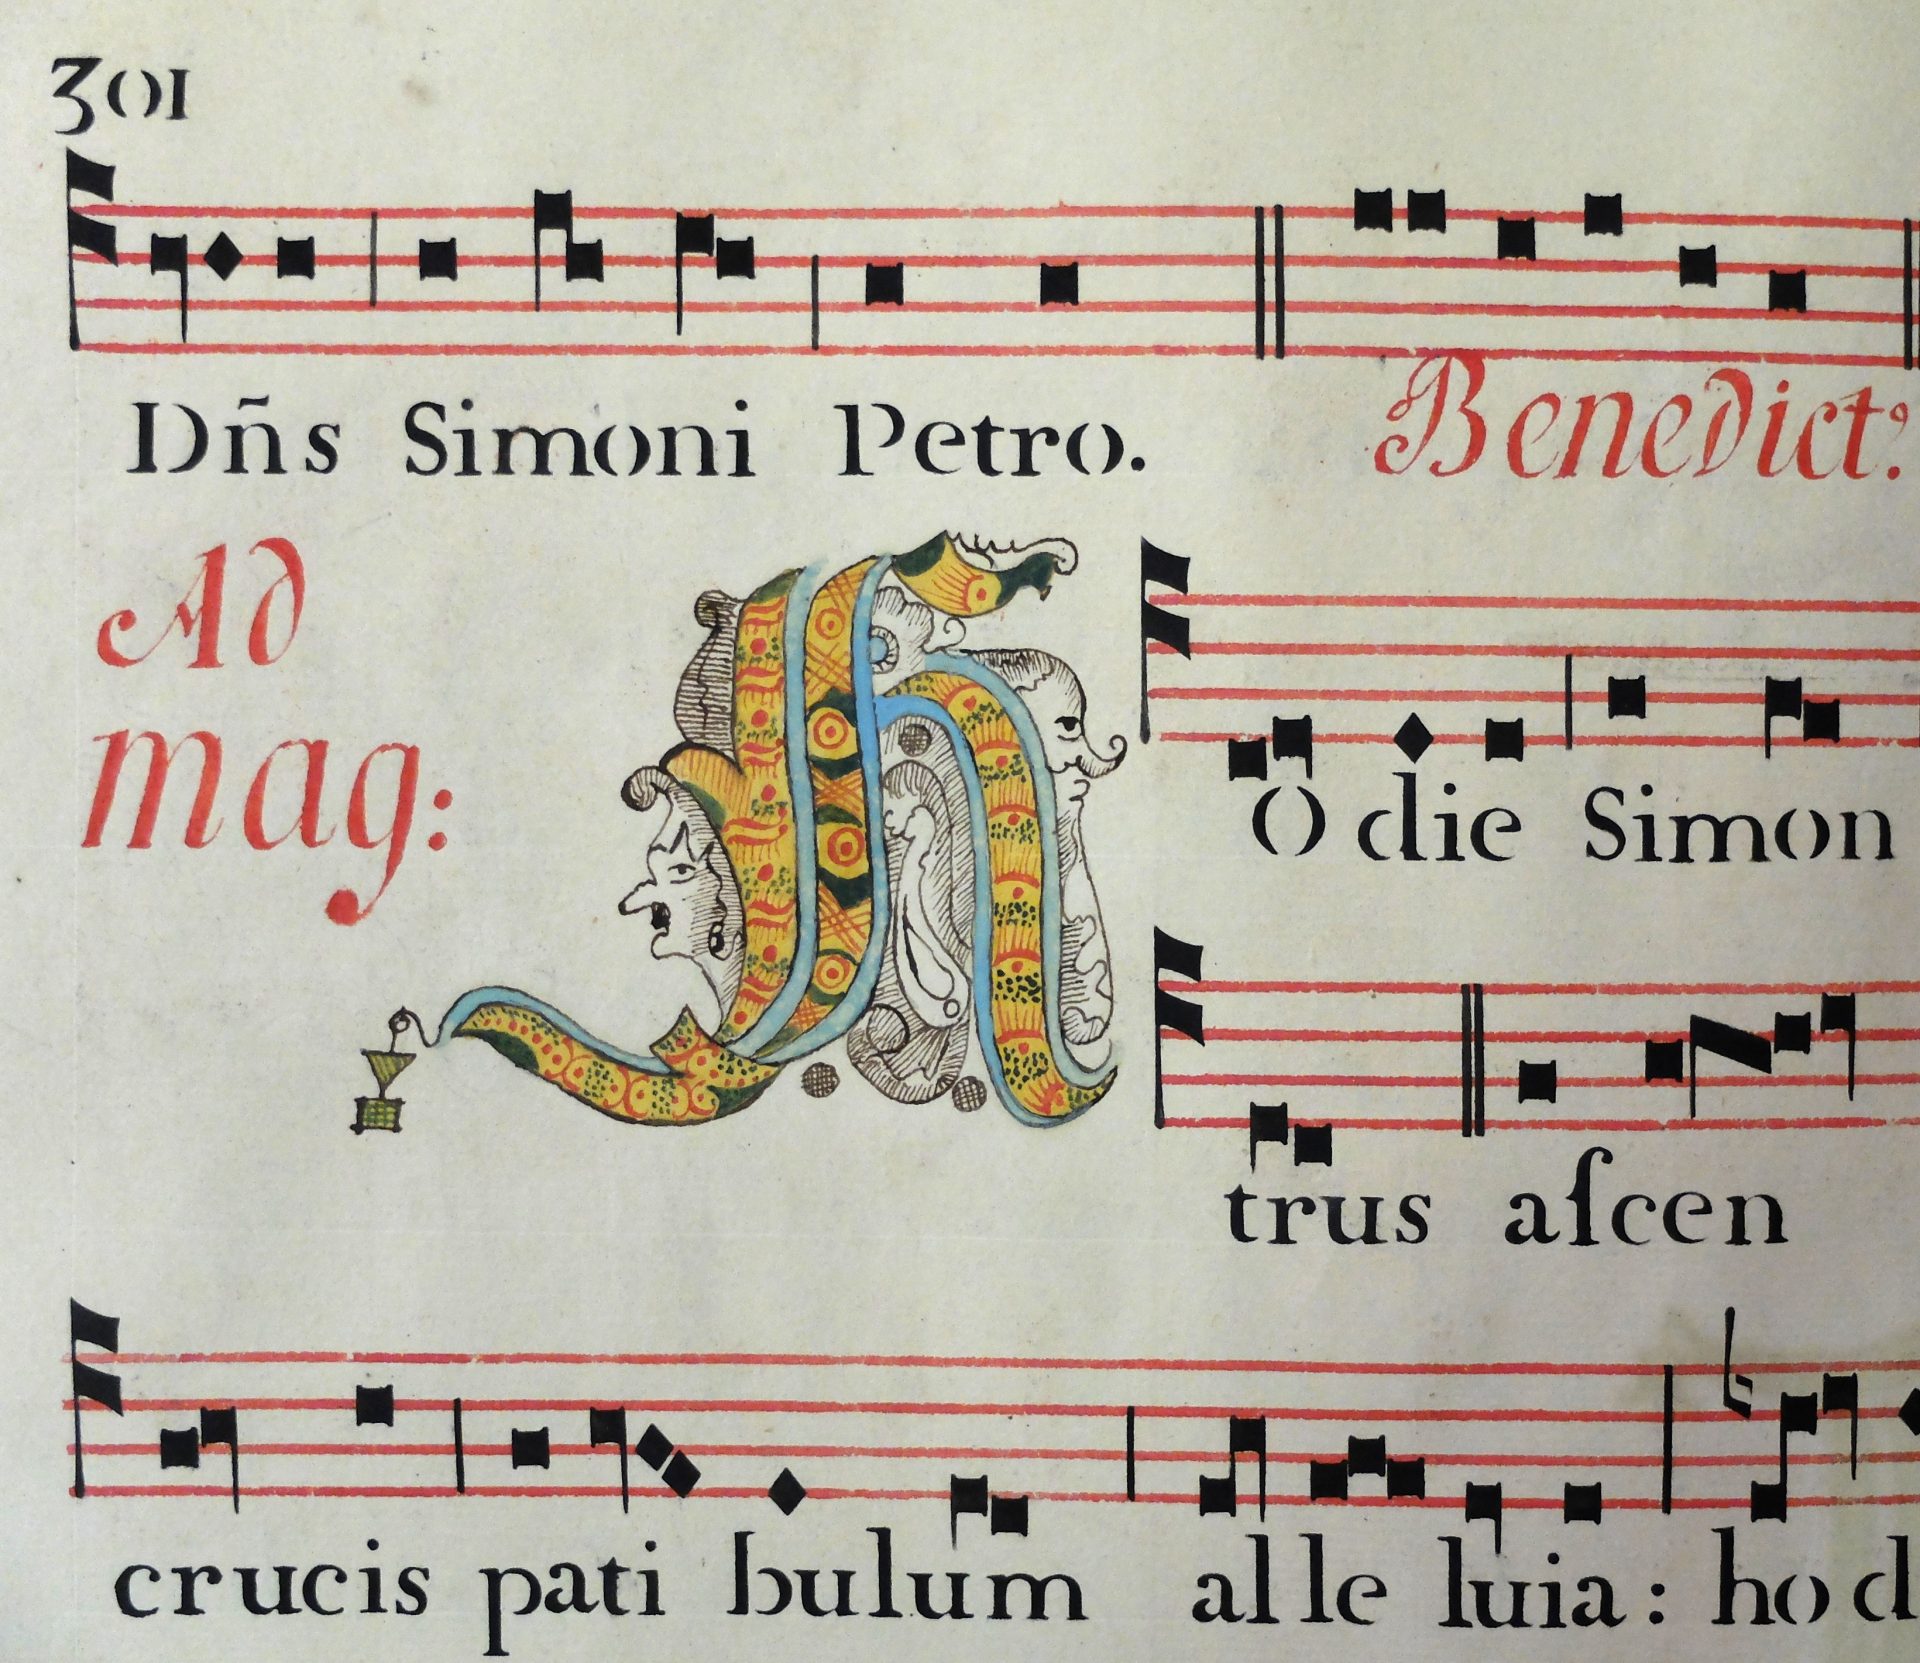 301
Dñs Simoni Petro. Benedict.
Ad
mag:
H Odie Simon
trus aſcen
crucis pati bulum alle luia: hod